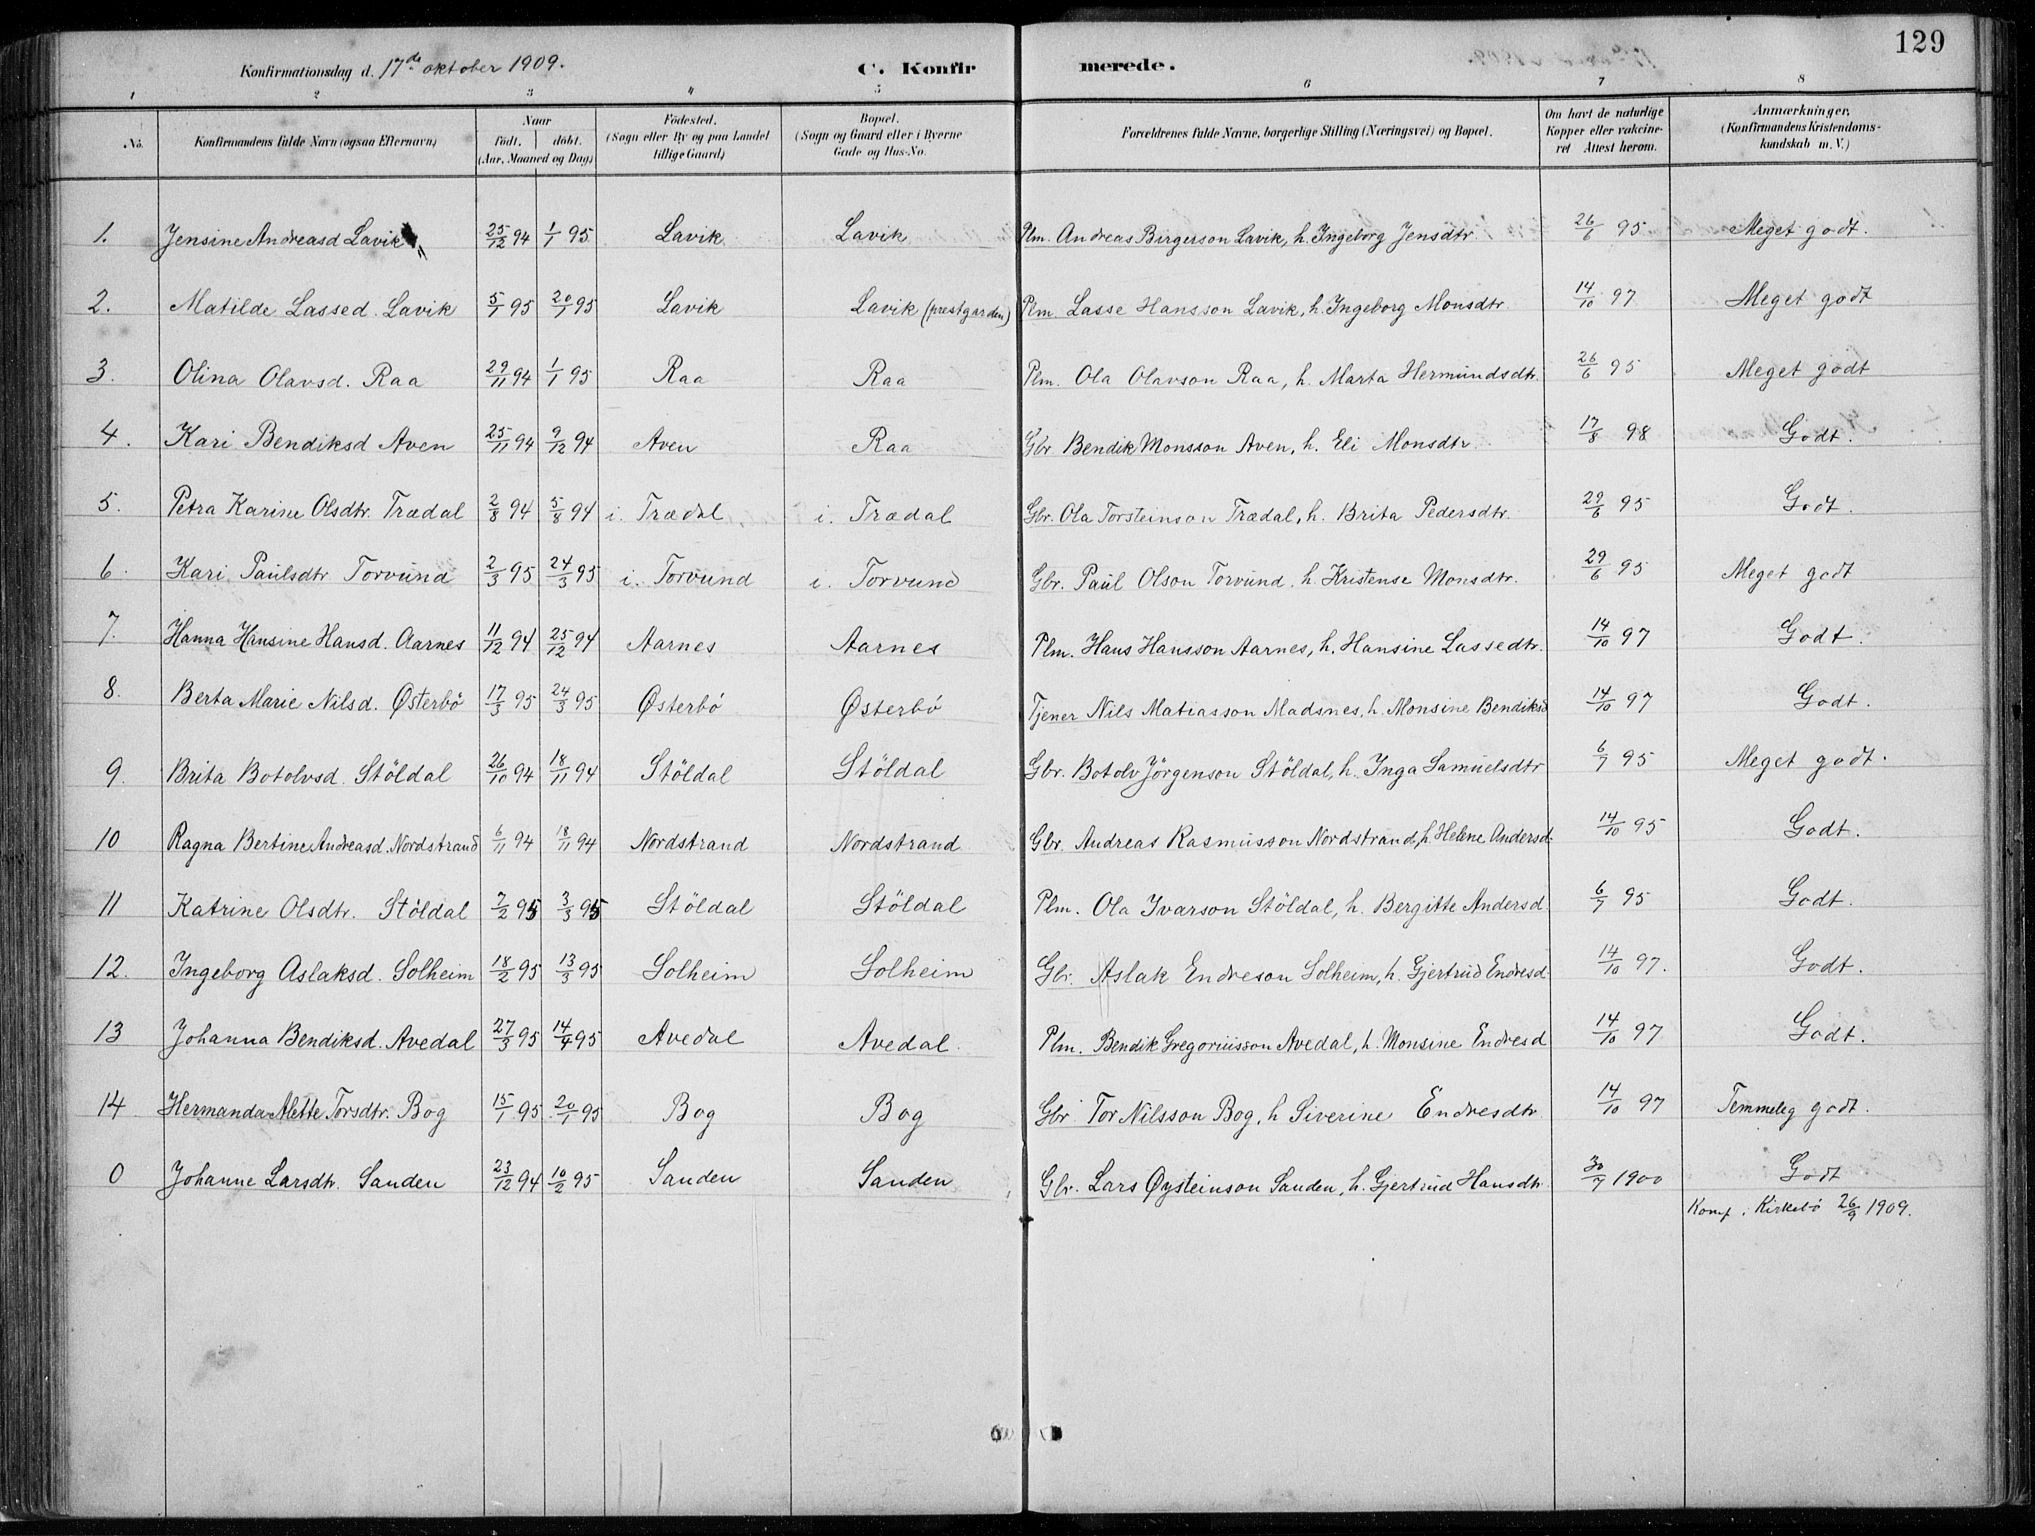 129
Konfirmationsdag d. 17de oktober 1909. C. Konfirmerede.
1 2 3 4 5 6 7 8
No. Konfirmandens fulde Navn (ogsaa Efternavn) Naar født. døbt. (Aar, Maaned og Dag) Fødested. (Sogn eller By og paa Landet tillige Gaard) Bopæl. (Sogn og Gaard eller i Byerne Gade og Hus-No. Forældrenes fulde Navne, borgerlige Stilling (Næringsvei) og Bopæl. Om havt de naturlige Kopper eller vakcineret Attest herom. Anmærkninger. (Konfirmandens Kristendomskundskab m. V.)
1. Jensine Andreasd Lavik 25/12 94 1/1 95 Lavik Lavik Plm. Andreas Birgerson Lavik, h. Ingeborg Jensdtr. 26/6 95 Meget godt.
2. Matilde Lassed. Lavik 5/1 95 20/1 95 Lavik Lavik (prestgarden) Plm Lasse Hansson Lavik, h. Ingeborg Monsdtr. 14/10 97 Meget godt
3. Olina Olavsd. Raa 29/11 94 1/1 95 Raa Raa Plm. Ola Olavson Raa, h. Marta Hermundsdtr. 26/6 95 Meget godt
4. Kari Bendiksd Aven 25/11 94 9/12 94 Aven Raa Gbr Bendik Monsson Aven, h. Eli Monsdtr. 17/8 98 Godt.
5. Petra Karine Olsdtr. Trædal 2/8 94 5/8 94 i. Trædal i. Trædal Gbr. Ola Torsteinson Trædal, h. Brita Pedersdtr. 29/6 95 Godt.
6. Kari Paulsdtr Torvund 2/3 95 24/3 95 i. Torvund i. Torvund Gbr. Paul Olson Torvund, h. Kristense Monsdtr. 29/6 95 Meget godt
7. Hanna Hansine Hansd. Aarnes 11/12 94 25/12 94 Aarnes Aarnes Plm. Hans Hansson Aarnes, h. Hansine Lassedtr. 14/10 97 Godt.
8. Berta Marie Nilsd. Østerbö 17/3 95 24/3 95 Østerbö Østerbö Tjener Nils Matiasson Madsnes, h. Monsine Bendiksd 14/10 97 Godt.
9. Brita Botolvsd. Stöldal 26/10 94 18/11 94 Stöldal Stöldal Gbr. Botolv Jörgenson Stöldal, h. Inga Samuelsdtr 6/7 95 Meget godt.
10 Ragna Bertine Andreasd. Nordstrand 6/11 94 18/11 94 Nordstrand Nordstrand Gbr. Andreas Rasmusson Nordstrand, h. Helene Andersd. 14/10 95 Godt.
11 Katrine Olsdtr. Stöldal 7/2 95 3/3 95 Stöldal Stöldal Plm. Ola Ivarson Stöldal, h. Bergitte Andersd. 6/7 95 Godt.
12. Ingeborg Aslaksd. Solheim 18/2 95 13/3 95 Solheim Solheim Gbr. Aslak Endreson Solheim, h. Gjertrud Endresd. 14/10 97. Godt.
13 Johanna Bendiksd. Avedal 27/3 95 14/4 95 Avedal Avedal. Plm. Bendik Gregoriusson Avedal, h. Monsine Endresd 14/10 97 Godt.
14 Hermanda Alette Torsdtr. Bog 15/1 95 20/1 95 Bog Bog Gbr. Tor Nilsson Bog, h Siverine Endresdtr. 14/10 97 Temmeleg godt.
0 Johanne Larsdtr. Sanden 23/12 94 10/2 95 Sanden Sanden Gbr. Lars Øysteinson Sanden, h. Gjertrud Hansdtr. 30/7 1900 Godt
Konf. i Kirkebö 26/9 1909.